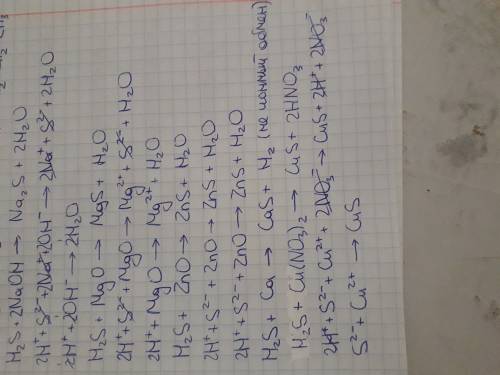 H₂S + 2NaOH → Na₂S + 2H₂O
2H⁺ + S²⁻ + 2Na⁺ + 2OH⁻ → 2Na⁺ + S²⁻ + 2H₂O
2H⁺ + 2OH⁻ → 2H₂O
H₂S + MgO → MgS + H₂O
2H⁺ + S²⁻ + MgO → Mg²⁺ + S²⁻ + H₂O
2H⁺ + MgO → Mg²⁺ + H₂O
H₂S + ZnO → ZnS + H₂O
2H⁺ + S²⁻ + ZnO → ZnS + H₂O
2H⁺ + S²⁻ + ZnO → ZnS + H₂O
H₂S + Ca → CaS + H₂ (не ионный обмен)
H₂S + Cu(NO₃)₂ → CuS + 2HNO₃
2H⁺ + S²⁻ + Cu²⁺ + 2NO₃⁻ → CuS + 2H⁺ + 2NO₃⁻
S²⁻ + Cu²⁺ → CuS